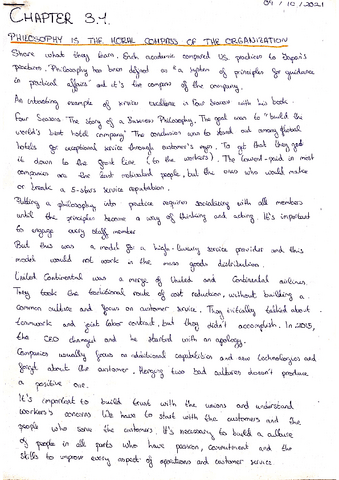 04/10/2021
CHAPTER 3.1.
PHILOSOPHY IS THE MORAL COMPASS OF THE ORGANIZATION
Share what they learn. Such academic compared US practices to Japan's
practices. Philosophy has been defined as "a system of principles for guidance
in practical affairs" and it's the compass of the company.
An interesting example of service excellence is Four Seasons with his book.
Four Seasons "The story of a Business Philosophy. The goal was to "build the
world's best hotel company" The conclusion was to stand out among global
hotels for exceptional service through customer's eyes. To get that they
it down to the front line (to the workers). The lowest-paid in most
companies are the least motivated people, but the ones who would make
or break a 5-stars service reputation.
Putting a philosophy into practice requires socializing with all members
until the principles become a way of thinking and acting. It's important
to engage every staff member
But this was a model for a high-luxury service provider and this
model would not work in the mass goods distribution.
United Continental was a merge of United and Continental airlines.
They took the traditional route of cost reduction, without building a
common culture and focus on customer service. They initially talked about
teamwork and joint labor contract, but they didn't accomplish. In 2015,
the CEO changed and he started with an apology.
Companies usually focus on additional capabilities and new technologies and
forget about the customer. Merging two bad cultures doesn't produce
a positive one.
It's important to build trust with the unions and understand
worker's concerns We have to start with the customers and the
people who serve the customers. It's necessary to build a culture
of people in all parts who have passion, commitment and the
skills to improve every aspect of operations and customer service